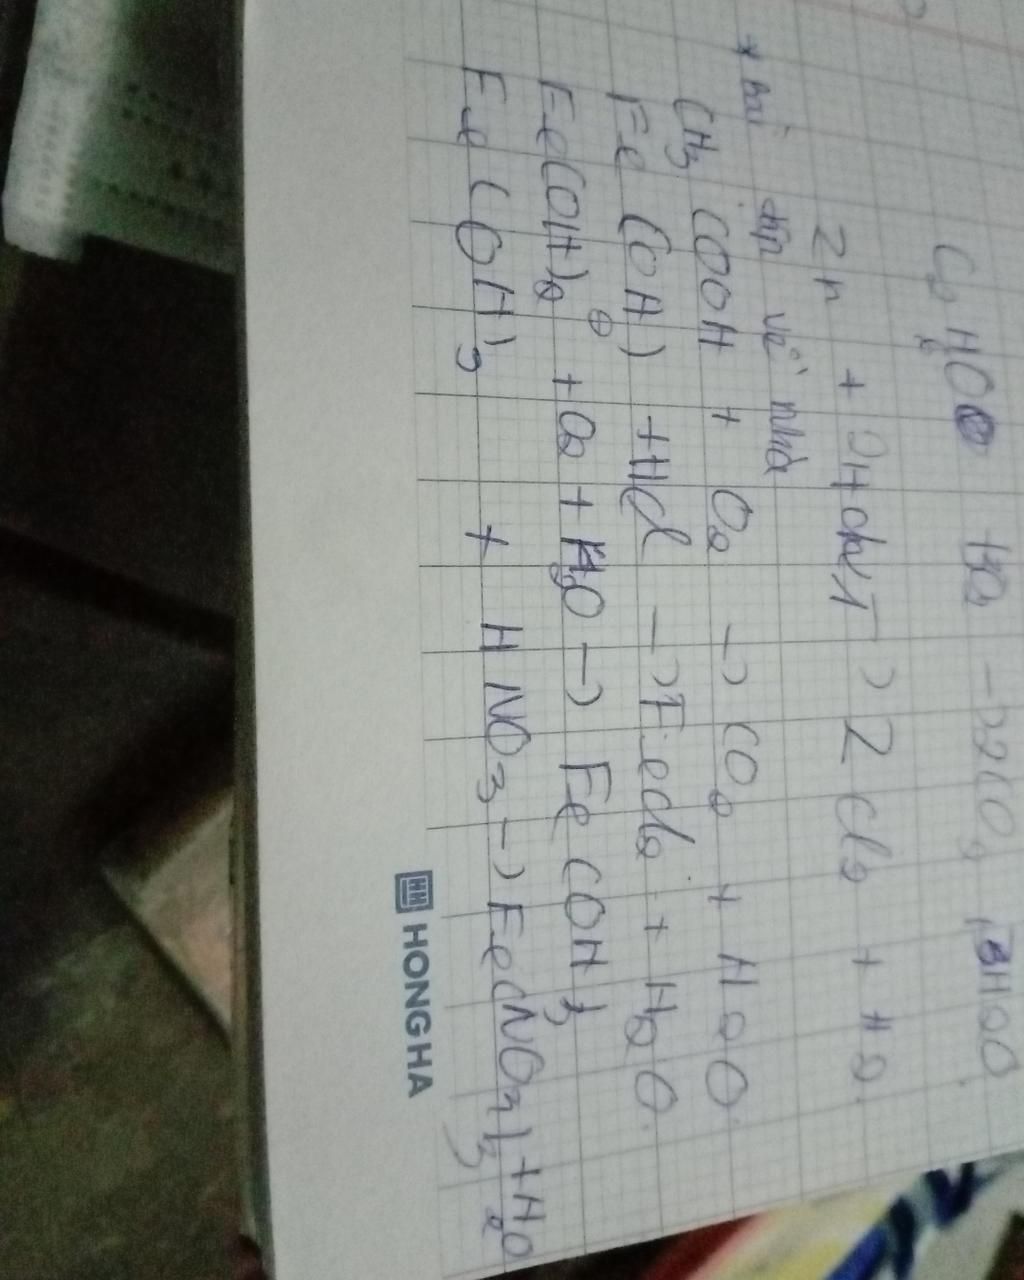 C2H6O O2 -> 2CO2 + 3H2O
Zn + 2HCl -> ZCl2 + H2
* bài tập về nhà
CH3 COOH + O2 -> CO2 + H2O
Fe (OH)2 + HCl -> FeCl2 + H2O
Fe(OH)2 + O2 + H2O -> Fe(OH)3
Fe(OH)3 + HNO3 -> Fe(NO3)3 + H2O
HONG HA